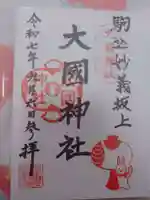 駒込妙義坂上
大國神社
令和七年
拝